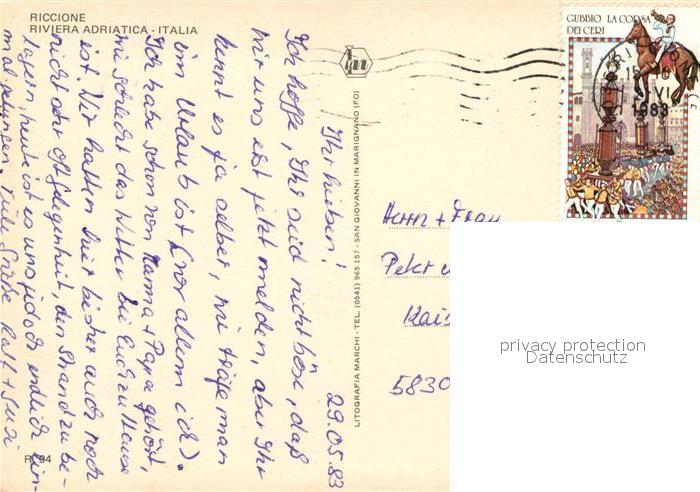 RICCIONE
RIVIERA ADRIATICA - ITALIA
29.05.83
Ihr Lieben!
Ich hoffe, Ihr seid nicht böse, daß
wir uns erst jetzt melden, aber Ihr
kennt es ja selber, wie träge man
im Urlaub ist (vor allem ich).
Ich habe schon von Mama + Papa gehört,
wie schlecht das Wetter bei Euch zu Hause
ist. Wir hatten hier bisher auch noch
nicht oft Gelegenheit, den Strand zu be-
lagern, heute ist es uns jedoch endlich ein-
mal gelungen. Viele Grüße Ralf + Susi
R. 94
LITOGRAFIA MARCHI - TEL. (0541) 965 157 - SAN GIOVANNI IN MARIGNANO (FO)
GUBBIO LA CORSA
DEI CERI
VI
1983
Herrn + Frau
Peter
5830
privacy protection
Datenschutz